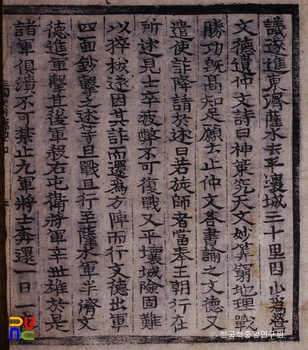 議遂進東濟薩水去平壤城三十里因山爲營
文德遺仲文詩曰神策究天文妙算窮地理戰
勝功旣高知足願云止仲文荅書諭之文德又
遣使詐降請於述曰若旋師者當奉王朝行在
所述見士卒疲弊不可復戰又平壤城險固難
以猝拔遂因其詐而還爲方陣而行文德出軍
四面鈔擊之述等且戰且行至薩水軍半濟文
德進軍擊其後軍殺右屯衛將軍辛世雄於是
諸軍俱潰不可禁止九軍將士奔還一日
한국학중앙연구원